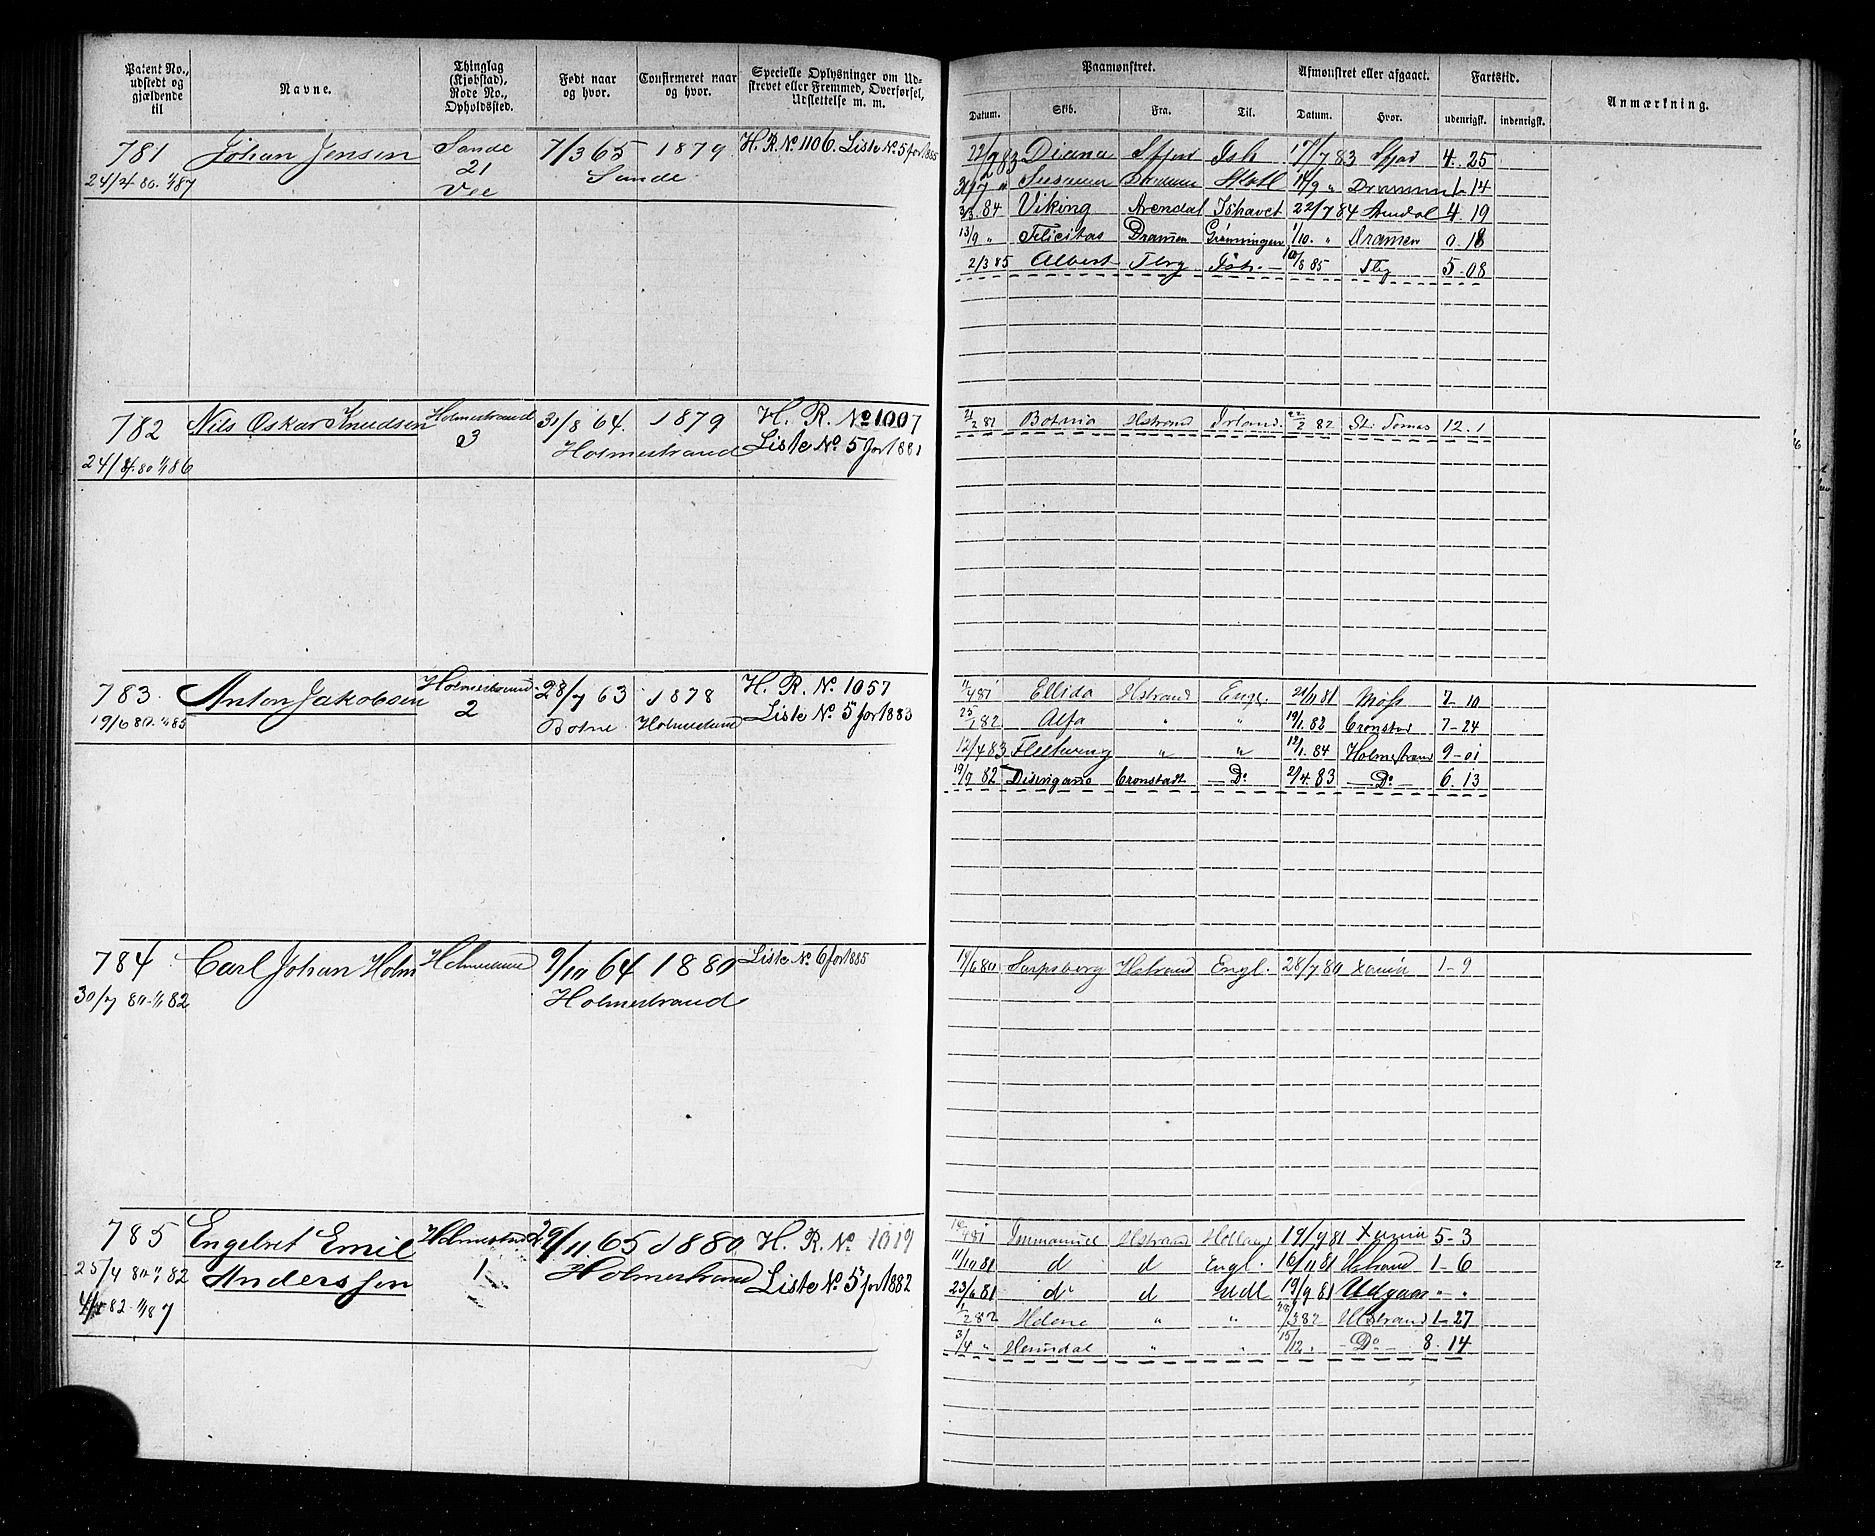 Patent No., udstedt og gjældende til
Navne.
Thinglag (Kjøbstad), Rode No., Opholdssted.
Født naar og hvor.
Confirmeret naar og hvor.
Specielle Oplysninger om Udstrevet eller Fremmed, Overførsel, Udslettelse m. m.
Paamønstret.
Afmønstret eller afgaaet.
Fartstid.
Anmærkning.
Datum.
Skib.
Fra.
Til.
Datum.
Hvor.
udenrigsk.
indenrigsk.
781 Johan Jensen Sande 7/3 65 1879 H. R. No 1106. Liste No 5 for 1885
24/4 80. 1/1 87 21 Sande
22/2 83 Diana Sfjord Ish 17/7 83 Sfjord 4. 25
14/9 " Drammen 1. 14
84 Viking Arendal Ishavet 22/7 84 Arendal 4. 19
13/9 " Felicitas Dramen 1/10. " Dramen 0. 18
2/3 85 Albert Tbrg Ish. 10/8 85 Tbg 5. 08
782 Nils Oskar Knudsen Holmestrand 31/8 64. 1879 H. R. No 1007
24/4. 80 1/1 86 3 Holmestrand Liste No 5 for 1881
Botnia Hstrand Irland. 82 St. Tomas 12. 1
783. Anton Jakobsen Holmestrand 28/7 63 1878 H. R. No. 1057
19/6 80. 1/1 85 2 Botne Holmestrand Liste No. 5 for 1883
11/4 81 Ellida Hstrand Engl. 21/11 81 Moss 7- 10
82 Alfa " " 19/1. 82 Cronstad 7-24
12/4 83 " " 12/1. 84 Holmestrand 9-01
19/9 82 Cronstadt Do 2/4. 83 Do 6. 13
784 Carl Johan Holm Holmestrand 9/10 64 1880 Liste No. 6 for 1885
30/7 80-1/1 82 Holmestrand
19/6 80 Sarpsborg Hstrand Engl. 28/7 80 Xania 1-9
785 Engebret Emil Holmestrand 29/11 65 1880 H. R. No. 1019
25/4 80-1/1 82 Anderssen 1 Holmestrand Liste No. 5 for 1882
82. 1/1 87
81 Immanuel Hstrand Holland 19/7 81 Xania 5-3
11/10 81 d d Engl. 16/11 81 Hstrand 1-6
23/6 81 do d Udl 19/9 81 " "
82 Helene " " 82 Hstrand 1-27
3/4 " Heimdal " " 15/12. Do 8. 14